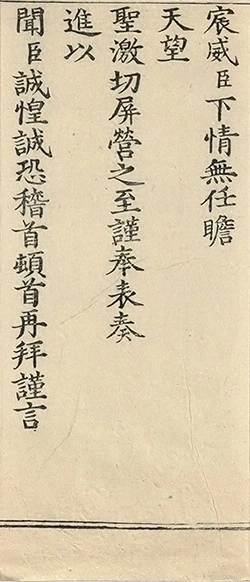 宸威臣下情無任瞻
天望
聖激切屏營之至謹奉表奏
進以
聞臣誠惶誠恐稽首頓首再拜謹言